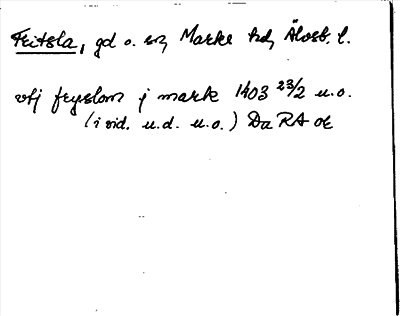 Fritsla, gd o. sn, Marks hd, Älvsb. l.
vtj fryslom j mark 1403 23/2 u.o.
(i vid. u.d. u.o.) Da RA or